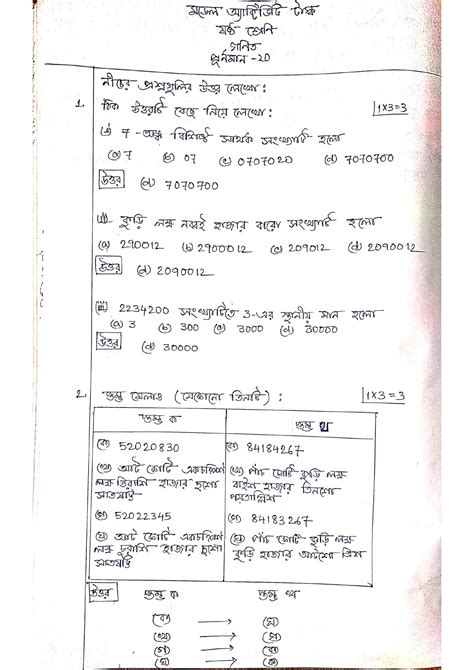 মডেল অ্যাক্টিভিটি টাস্ক
ষষ্ঠ শ্রেণি
গণিত
পূর্ণমান - 20
নীচের প্রশ্নগুলির উত্তর লেখো :
1. ঠিক উত্তরটি বেছে নিয়ে লেখো : 1×3=3
(i) 7 - অঙ্ক বিশিষ্ট সার্থক সংখ্যাটি হলো
(a) 7 (b) 07 (c) 0707020 (d) 7070700
উত্তর (d) 7070700
(ii) কুড়ি লক্ষ নব্বই হাজার বারো সংখ্যাটি হলো
(a) 290012 (b) 2900012 (c) 209012 (d) 2090012
উত্তর (d) 2090012
(iii) 2234200 সংখ্যাটিতে 3-এর স্থানীয় মান হলো
(a) 3 (b) 300 (c) 3000 (d) 30000
উত্তর (d) 30000
2. স্তম্ভ মেলাও (যেকোনো তিনটি) : 1×3=3
স্তম্ভ ক স্তম্ভ খ
(ক) 52020830 (ক) 84184267
(খ) আট কোটি একচল্লিশ (খ) পাঁচ কোটি কুড়ি লক্ষ
লক্ষ তিরাশি হাজার দুশো বাইশ হাজার তিনশো
সাতষট্টি পঁয়তাল্লিশ
(গ) 52022345 (গ) 84183267
(ঘ) আট কোটি একচল্লিশ (ঘ) পাঁচ কোটি কুড়ি লক্ষ
লক্ষ চুরাশি হাজার দুশো কুড়ি হাজার আটশো ত্রিশ
সাতষট্টি
উত্তর স্তম্ভ ক স্তম্ভ খ
(ক) → (ঘ)
(খ) → (গ)
(গ) → (খ)
(ঘ) → (ক)